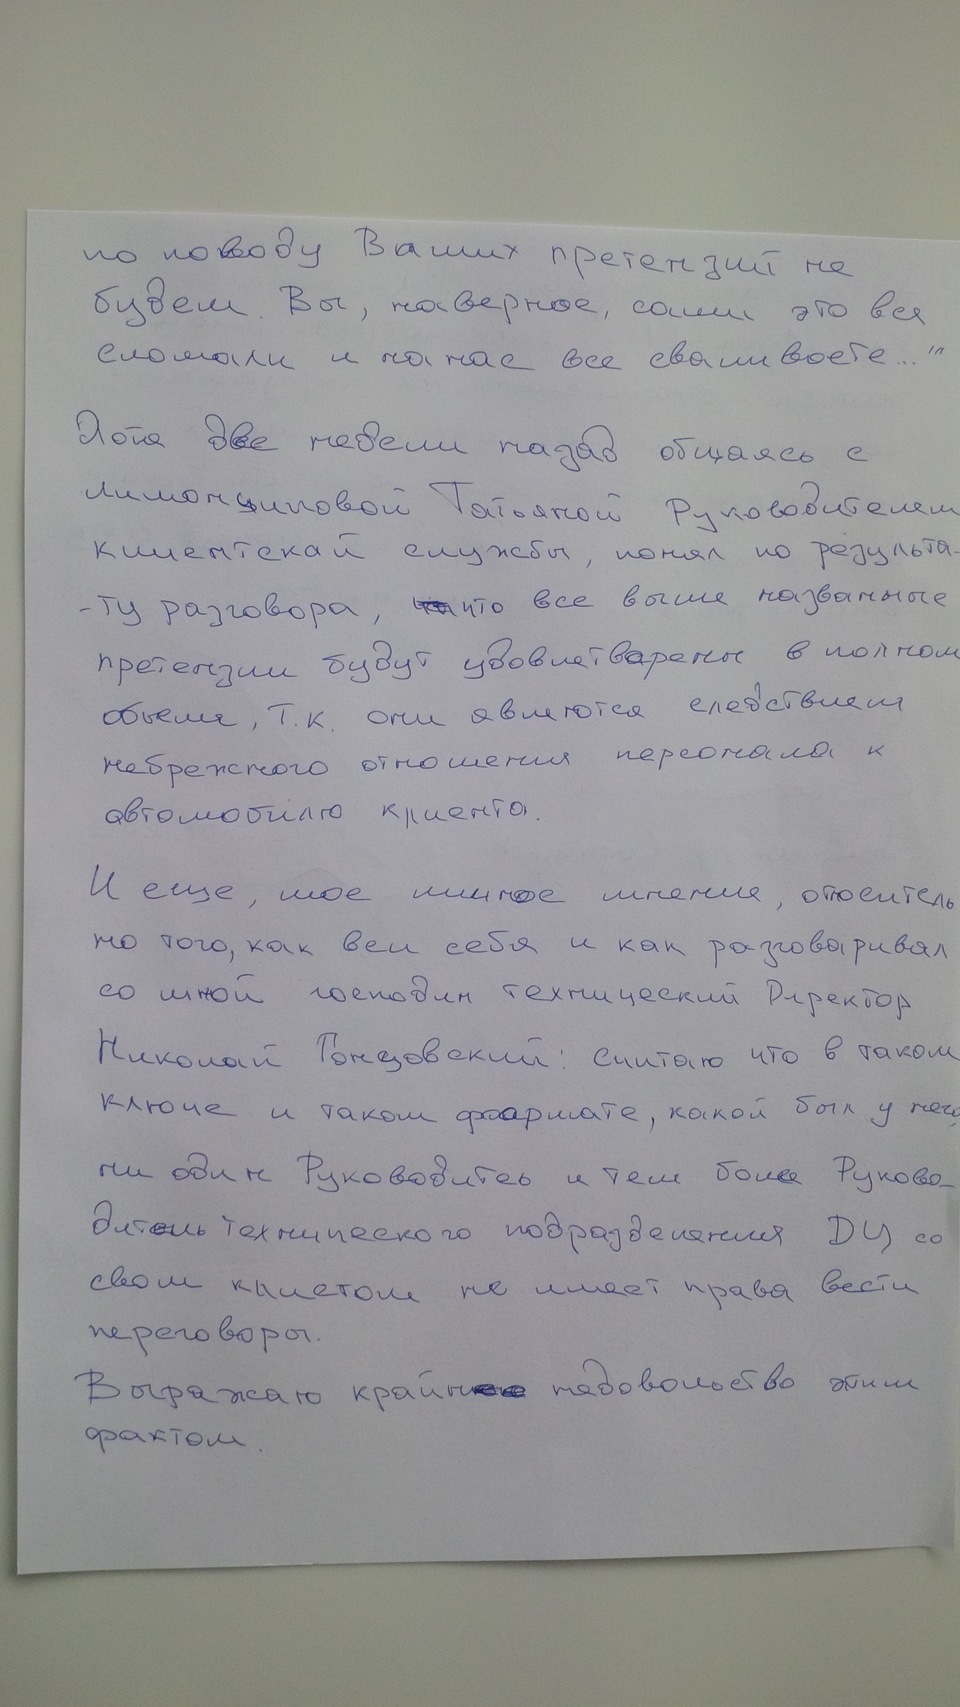 по поводу Ваших претензий не
будем. Вы, наверное, сами это все
сломали и на нас все сваливаете..."
Хотя две недели назад общаясь с
Лимонщиковой Татьяной Руководителем
клиентской службы, понял по результа-
-ту разговора, что все выше названные
претензии будут удовлетварены в полном
объеме, т.к. они являются следствием
небрежного отношения персонала к
автомобилю клиента.
И еще, мое личное мнение, относитель
но того, как вел себя и как разговаривал
со мной господин технический Директор
Николай Гонцовский: считаю что в таком
ключе и таком формате, какой был у него,
ни один Руководитеь и тем более Руково-
дитель технического подразделения ДЦ со
свом клиетом не имеет права вести
переговоры.
Выражаю крайнее недовольство этим
фактом.